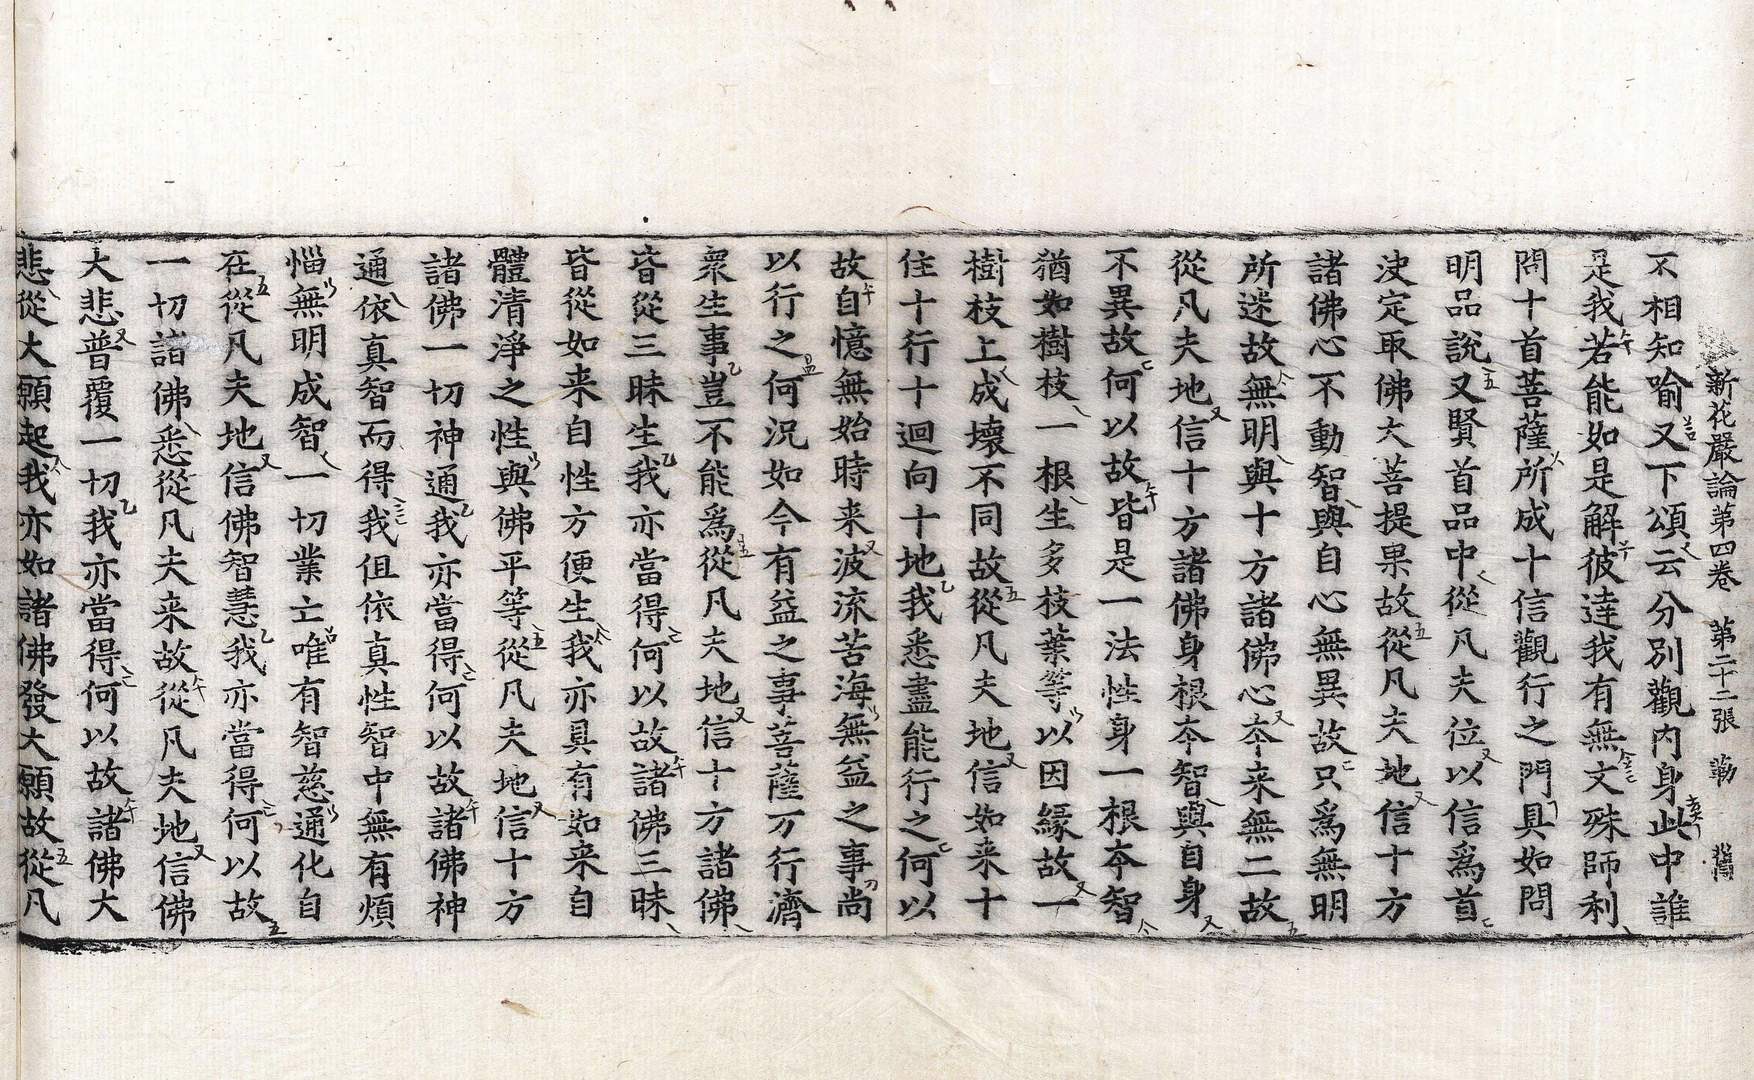 新花嚴論第四卷 第二十二張 勒
不相知喻又下頌云分別觀内身此中誰
是我若能如是解彼達我有無文殊師利
問十首菩薩所成十信觀行之門具如問
明品說又賢首品中從凡夫位以信爲首
決定取佛大菩提果故從凡夫地信十方
諸佛心不動智與自心無異故只爲無明
所迷故無明與十方諸佛心夲来無二故
從凡夫地信十方諸佛身根夲智與自身
不異故何以故皆是一法性身一根夲智
猶如樹枝一根生多枝葉等以因緣故一
樹枝上成壞不同故從凡夫地信如来十
住十行十迴向十地我悉盡能行之何以
故自憶無始時来波流苦海無益之事尚
以行之何況如今有益之事菩薩万行濟
衆生事豈不能爲從凡夫地信十方諸佛
皆從三昧生我亦當得何以故諸佛三昧
皆從如来自性方便生我亦具有如来自
體清淨之性與佛平等從凡夫地信十方
諸佛一切神通我亦當得何以故諸佛神
通依真智而得我但依真性智中無有煩
惱無明成智一切業亡唯有智慈通化自
在從凡夫地信佛智慧我亦當得何以故
一切諸佛悉從凡夫来故從凡夫地信佛
大悲普覆一切我亦當得何以故諸佛大
悲從大願起我亦如諸佛發大願故從凡